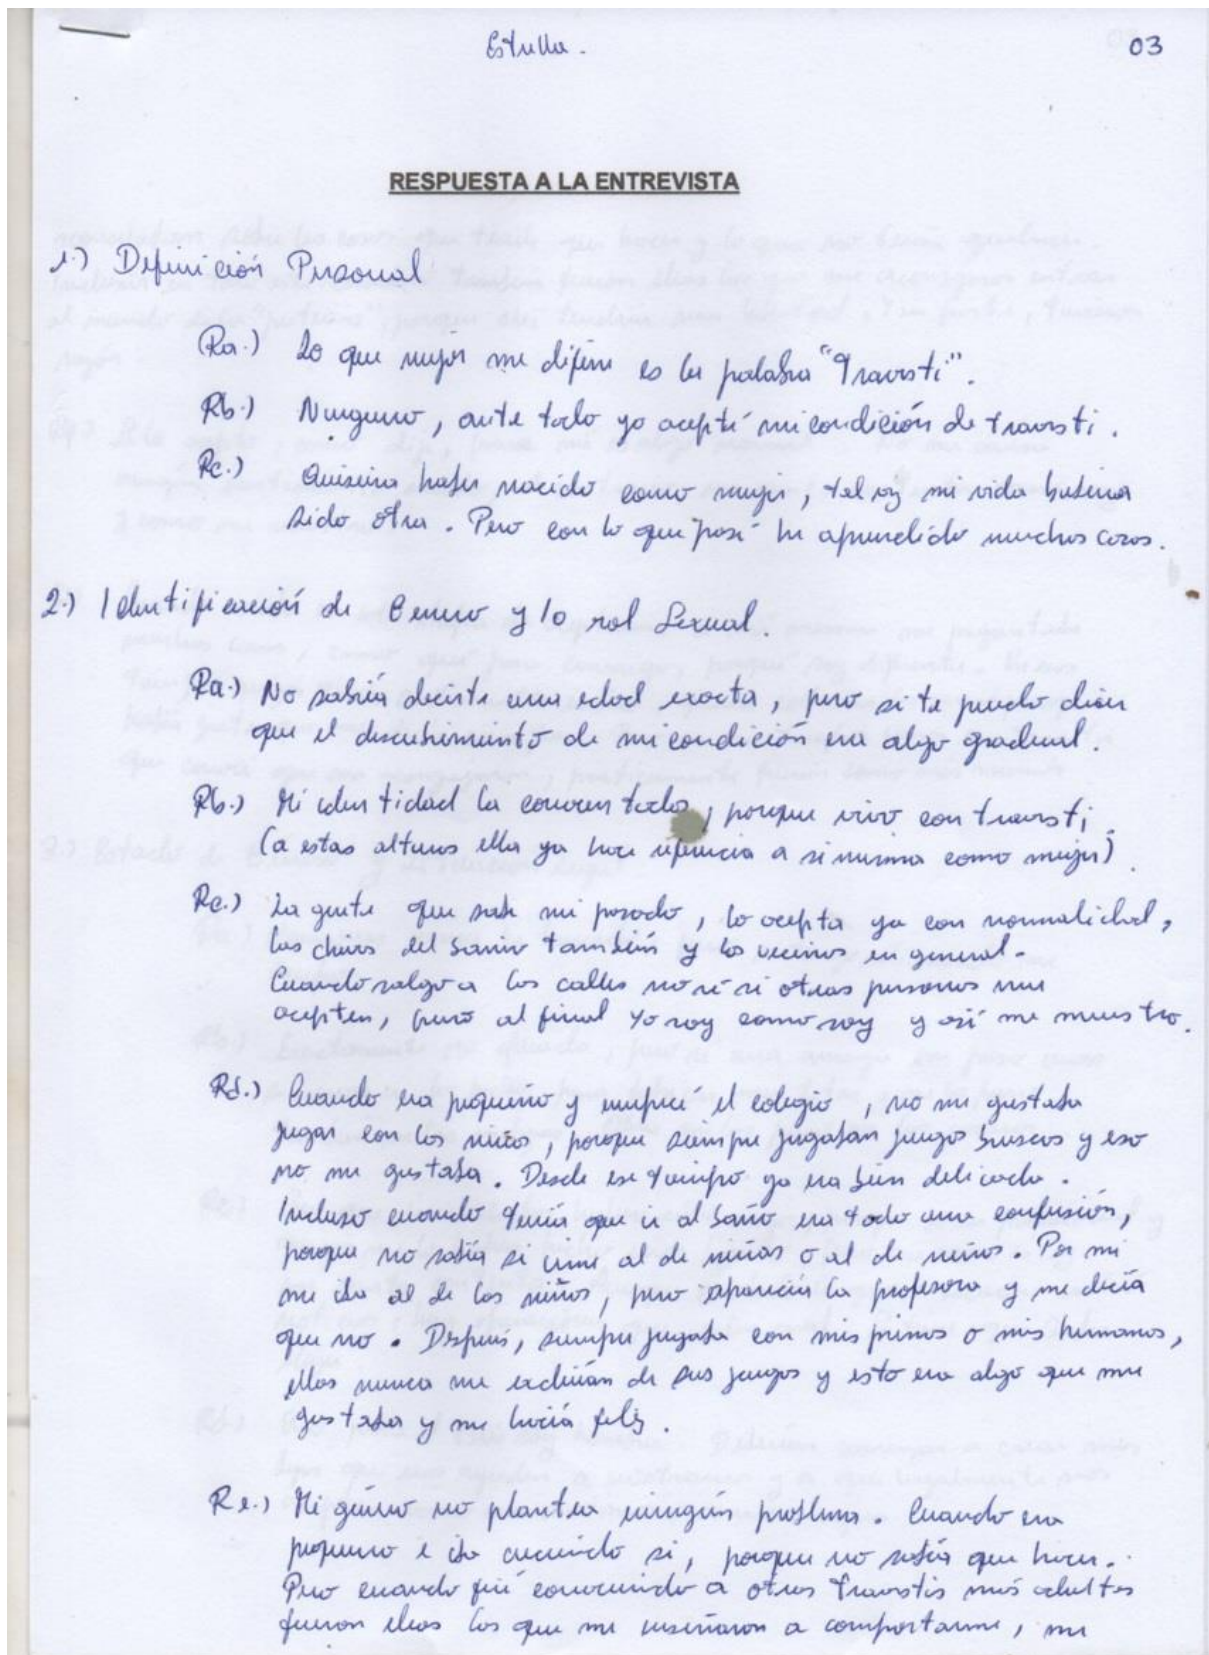 Estrella.
03
RESPUESTA A LA ENTREVISTA
1.) Definición Personal
Ra.) Lo que mejor me define es la palabra "Travesti".
Rb.) Ninguno, ante todo yo acepté mi condición de travesti.
Rc.) Quisiera haber nacido como mujer, tal vez mi vida hubiera
sido otra. Pero con lo que pasé he aprendido muchas cosas.
2.) Identificación de Género y/o rol Sexual.
Ra.) No sabría decirte una edad exacta, pero si te puedo decir
que el descubrimiento de mi condición era algo gradual.
Rb.) Mi identidad la conocen todos, porque vivo con travesti
(a estas alturas ella ya hace referencia a si misma como mujer).
Rc.) La gente que sabe mi pasado, lo acepta ya con normalidad,
los chicos del barrio también y los vecinos en general.
Cuando salgo a las calles no sé si otras personas me
acepten, pero al final yo soy como soy y así me muestro.
Rd.) Cuando era pequeño y empecé el colegio, no me gustaba
jugar con los niños, porque siempre jugaban juegos bruscos y eso
no me gustaba. Desde ese tiempo ya era bien delicado.
Incluso cuando tenía que ir al baño era todo una confusión,
porque no sabía si irme al de niñas o al de niños. Por mi
me iba al de las niñas, pero aparecía la profesora y me decía
que no. Después, siempre jugaba con mis primas o mis hermanas,
ellas nunca me excluían de sus juegos y esto era algo que me
gustaba y me hacía feliz.
Re.) Mi género no plantea ningún problema. Cuando era
pequeño e iba creciendo si, porque no sabía que hacer.
Pero cuando fui conociendo a otras travestis más adultas
fueron ellas las que me enseñaron a comportarme, me